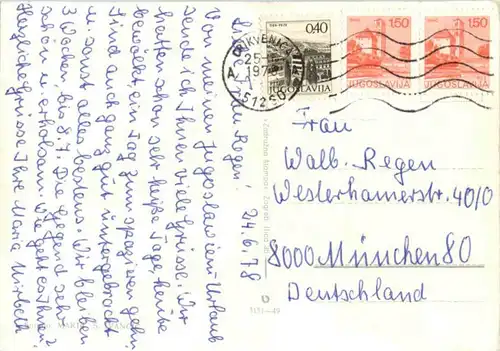 Liebe Frau Regen!
24.6.78
Von meinen Jugoslawien-Urlaub
sende ich Ihnen viele Grüsse. Wir
hatten schon sehr heiße Tage, heute
bewölkt ein Tag zum spazieren gehn.
Sind auch ganz gut untergebracht
u. sonst alles bestens. Wir bleiben
3 Wochen, bis 8.7. Die Gegend sehr
schön u. erholsam. Wie geht es Ihnen?
Herzliche Grüsse Ihre Maria
CRIKVENICA
1978
51260
0,40
JUGOSLAVIJA
1,50
JUGOSLAVIJA
1,50
JUGOSLAVIJA
Frau
Walb. Regen
Westerhamerstr. 40/0
8000 München 80
Deutschland